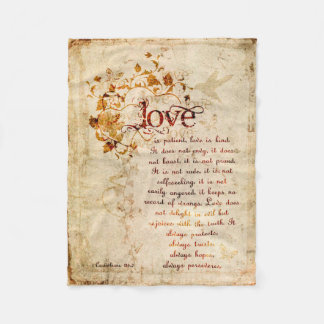 love
is patient, love is kind.
It does not envy, it does
not boast, it is not proud.
It is not rude, it is not
self-seeking, it is not
easily angered, it keeps no
record of wrongs. Love does
not delight in evil but
rejoices with the truth. It
always protects,
always trusts,
always hopes,
always perseveres.